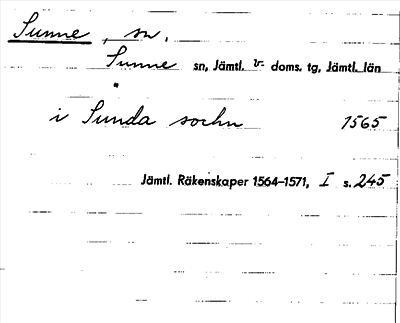 Sunne, sn.
Sunne sn, Jämtl. v. doms. tg, Jämtl. län
i Sunda sochn 1565
Jämtl. Räkenskaper 1564–1571, I s. 245